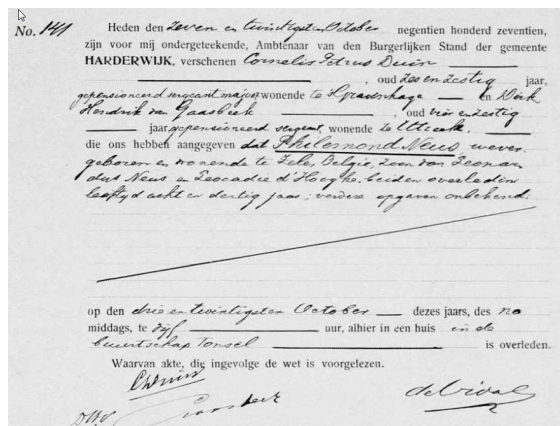 No. 141 Heden den zeven en twintigsten October negentien honderd zeventien,
zijn voor mij ondergeteekende, Ambtenaar van den Burgerlijken Stand der gemeente
HARDERWIJK, verschenen Cornelis Petrus Duin
, oud zes en zestig jaar,
gepensioneerd sergeant majoor, wonende te 's Gravenhage en Dirk
Hendrik van Gaasbeek , oud vier en zestig
jaar, gepensioneerd sergeant, wonende te Utrecht,
die ons hebben aangegeven dat Philemond Neus, wever,
geboren en wonende te Zele, Belgie, zoon van Leonar
dus Neus en Leocadie d'Hooghe, beiden overleden
leeftyd acht en dertig jaar; verdere opgaven onbekend.
op den drie en twintigsten October dezes jaars, des na
middags, te vijf uur, alhier in een huis in de
buurtschap Tonsel is overleden.
Waarvan akte, die ingevolge de wet is voorgelezen.
CPDuin
Gaasbeek